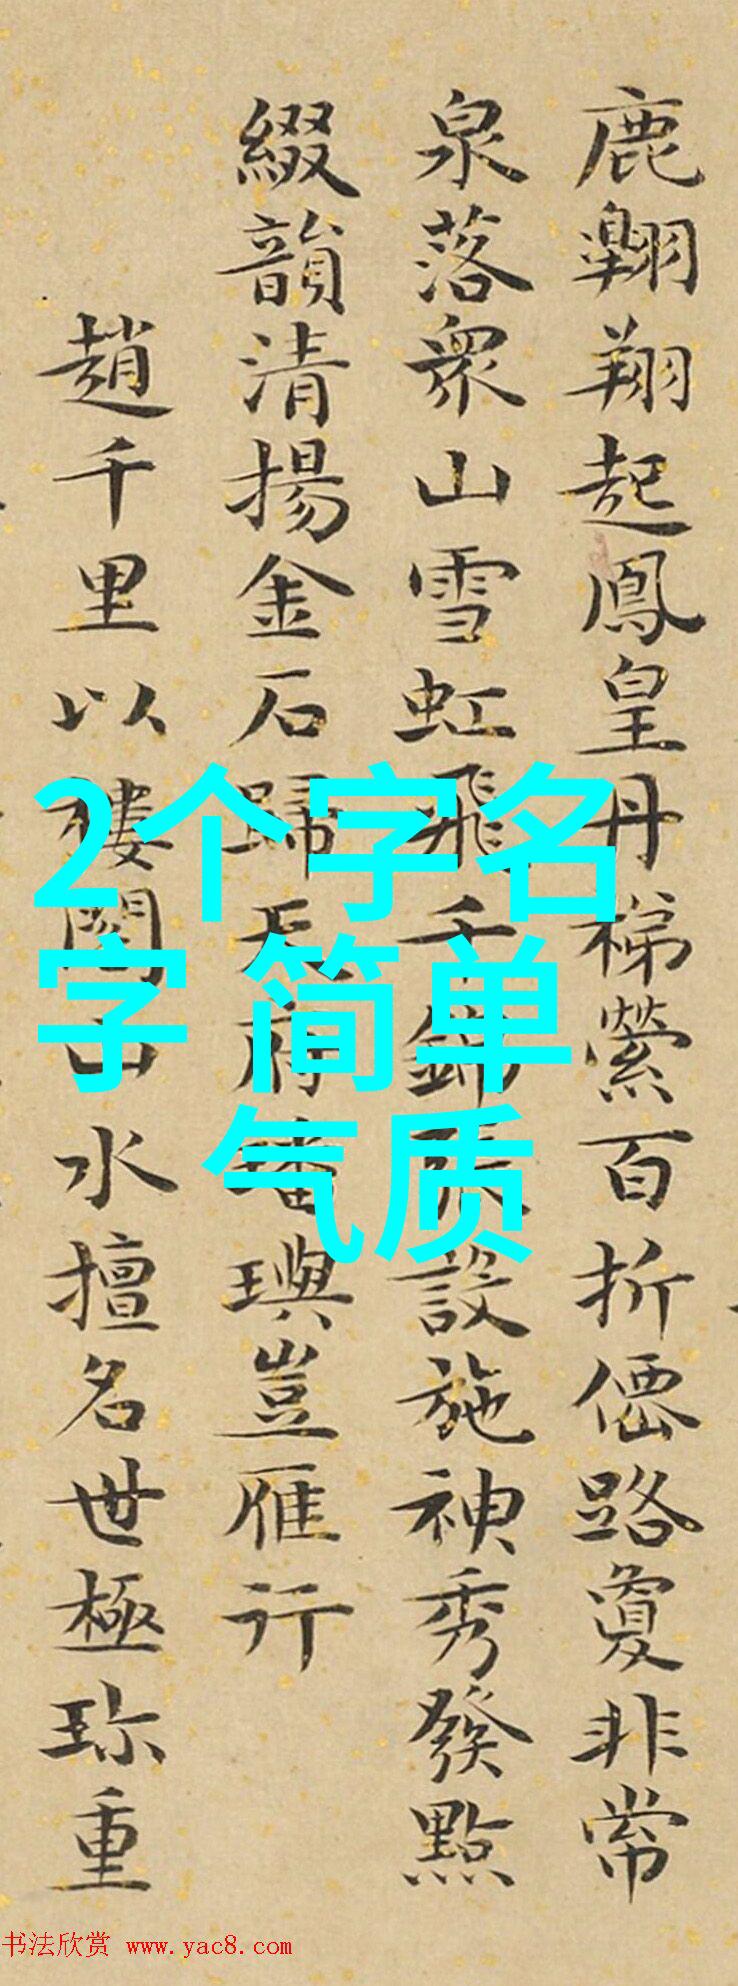 鹿翺翔起鳳皇丹梯縈百折僊路夐非常
泉落衆山雪虹飛千錦張設施神秀發點
綴韻清揚金石歸天府璠璵豈雁行
趙千里以樓閣山水擅名世極珎重
2个字名
字 简单
气质
书法欣赏 www.yac8.com